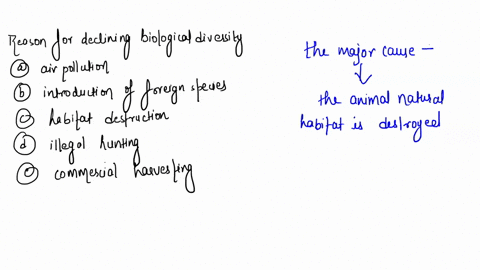 Reason for declining biological diversity
(a) air pollution
(b) introduction of foreign species
(c) habitat destruction
(d) illegal hunting
(e) commercial harvesting
the major cause —
↓
the animal natural
habitat is destroyed